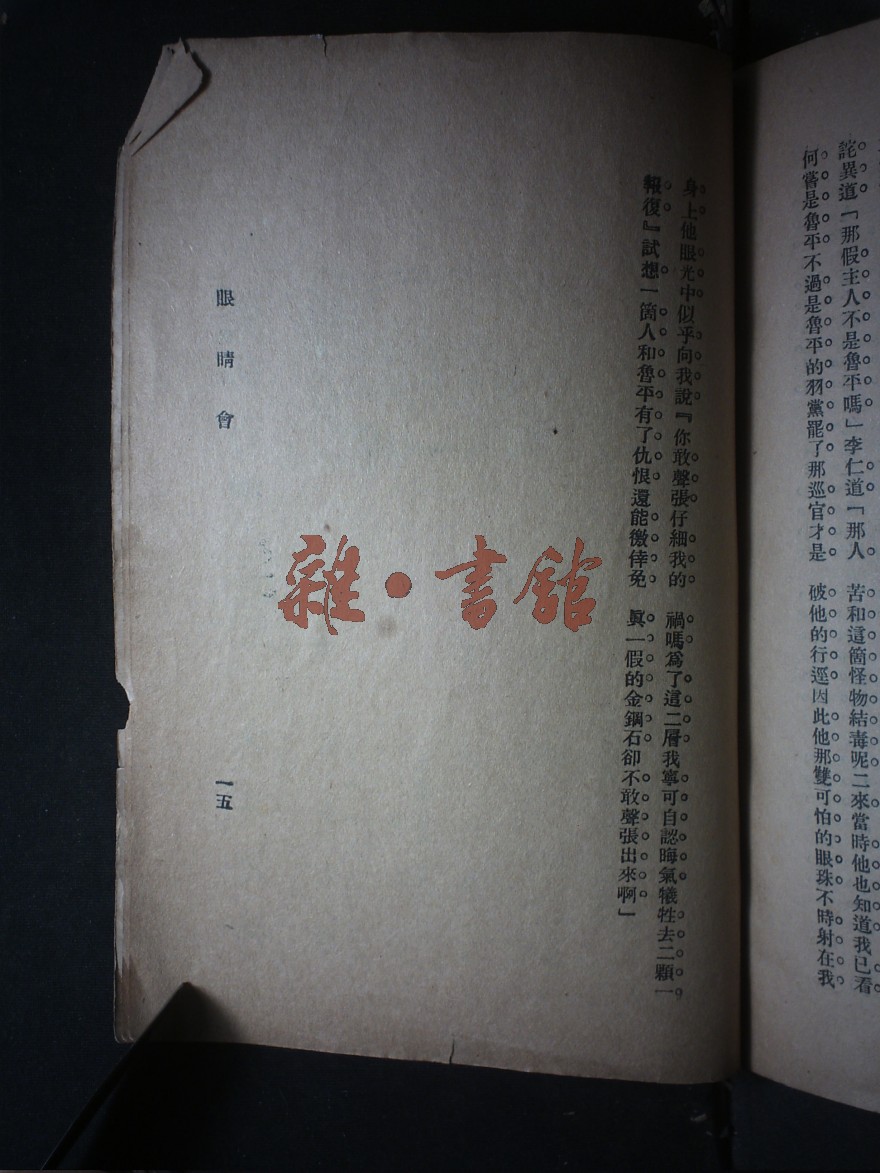 詫異道「那假主人不是魯平嗎」李仁道「那人
何嘗是魯平不過是魯平的羽黨罷了那巡官才是
苦和這箇怪物結毒呢二來當時他也知道我已看
破他的行逕因此他那雙可怕的眼珠不時射在我
身上他眼光中似乎向我說『你敢聲張仔細我的
報復』試想一箇人和魯平有了仇恨還能徼倖免
禍嗎爲了這二層我寧可自認晦氣犧牲去二顆一
眞一假的金鋼石卻不敢聲張出來啊」
眼睛會
一五
雜·書館